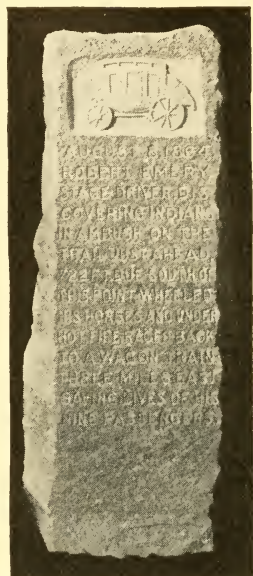 AUGUST 1864
ROBERT EMERY
STAGE DRIVER DIS
COVERING INDIANS
IN AMBUSH ON THE
TRAIL JUST AHEAD
FT. DUE SOUTH OF
THIS POINT WHEELED
HIS HORSES AND UNDER
HOT FIRE RACED BACK
TO A WAGON TRAIN
THREE MILES EAST
SAVING LIVES OF HIS
NINE PASSENGERS